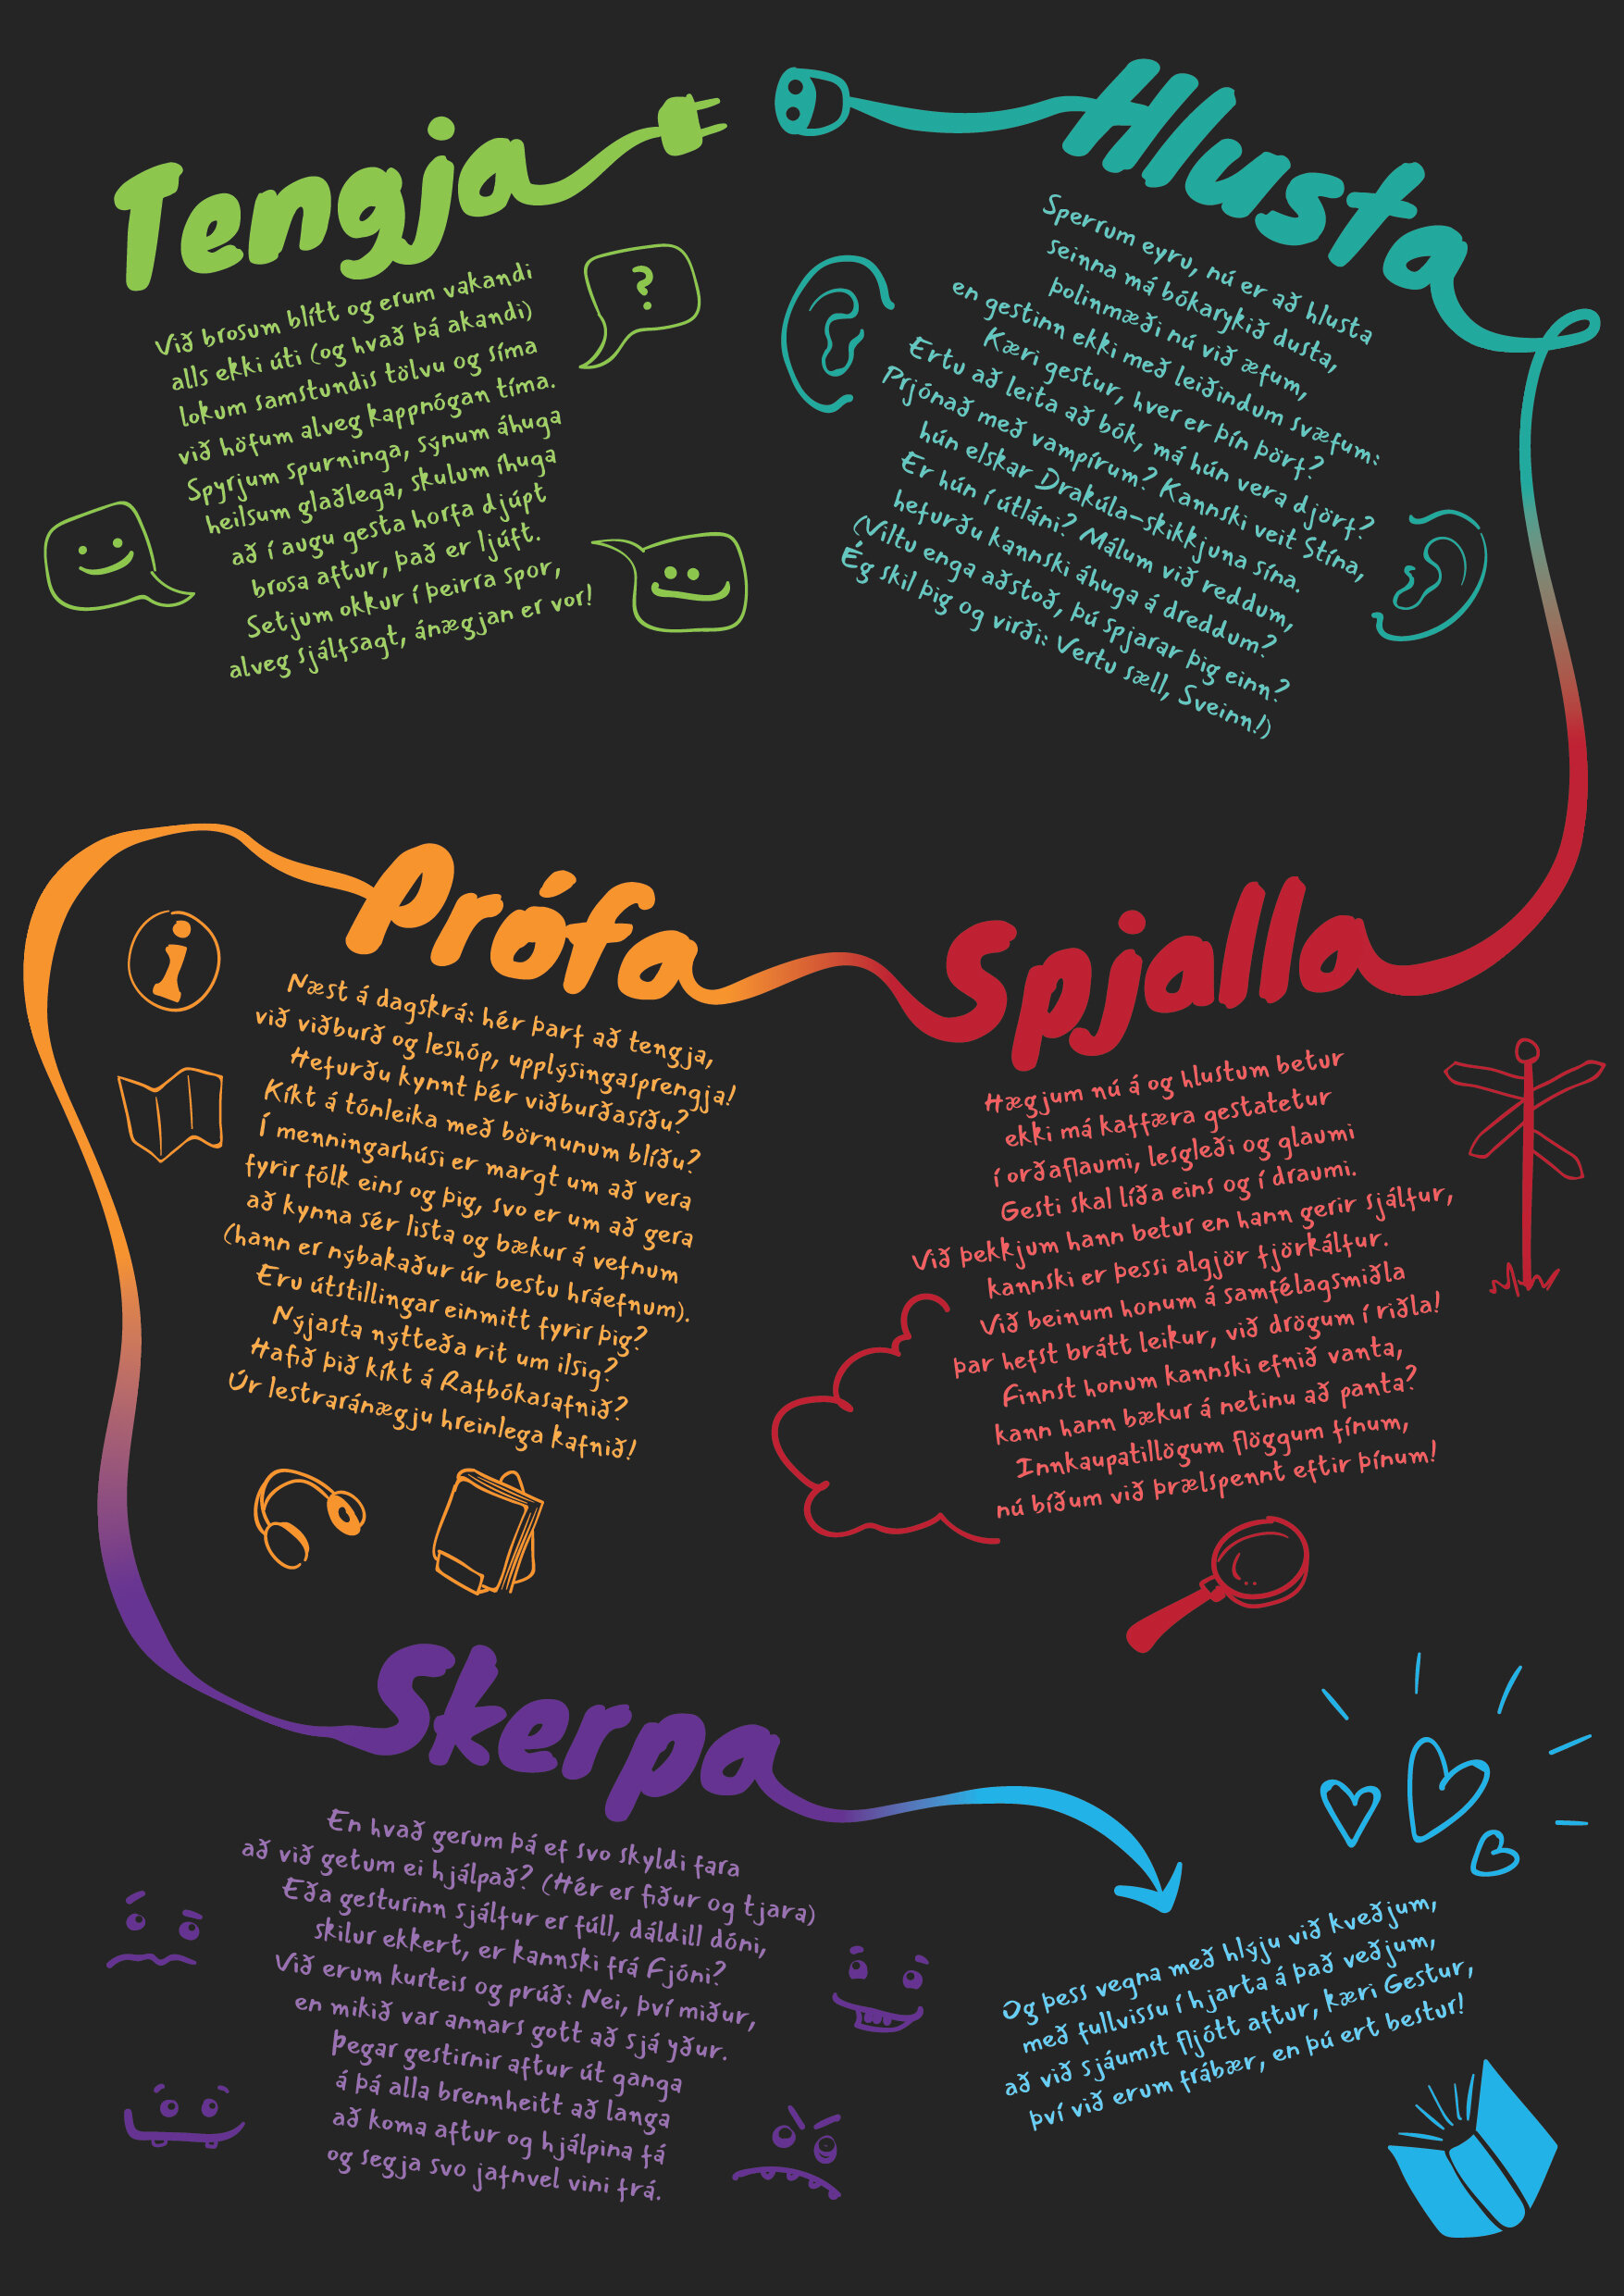 Tengja
Við brosum blítt og erum vakandi
alls ekki úti (og hvað þá akandi)
lokum samstundis tölvu og síma
við höfum alveg kappnógan tíma.
Spyrjum spurninga, sýnum áhuga
heilsum glaðlega, skulum íhuga
að í augu gesta horfa djúpt
brosa aftur, það er ljúft.
Setjum okkur í þeirra spor,
alveg sjálfsagt, ánægjan er vor!
?
Hlusta
Sperrum eyru, nú er að hlusta
seinna má bókarykið dusta,
þolinmæði nú við æfum,
en gestinn ekki með leiðindum svæfum:
Kæri gestur, hver er þín þörf?
Ertu að leita að bók, má hún vera djörf?
Prjónað með vampírum? Kannski veit Stína,
hún elskar Drakúla-skikkjuna sína.
Er hún í útláni? Málum við reddum,
hefurðu kannski áhuga á dreddum?
(Viltu enga aðstoð, þú spjarar þig einn?
Ég skil þig og virði: Vertu sæll, Sveinn!)
Spjalla
Hægjum nú á og hlustum betur
ekki má kaffæra gestatetur
í orðaflaumi, lesgleði og glaumi
Gesti skal líða eins og í draumi.
Við þekkjum hann betur en hann gerir sjálfur,
kannski er þessi algjör fjörkálfur.
Við beinum honum á samfélagsmiðla
þar hefst brátt leikur, við drögum í riðla!
Finnst honum kannski efnið vanta,
kann hann bækur á netinu að panta?
Innkaupatillögum flöggum fínum,
nú bíðum við þrælspennt eftir þínum!
Prófa
i
Næst á dagskrá: hér þarf að tengja,
við viðburð og leshóp, upplýsingasprengja!
Hefurðu kynnt þér viðburðasíðu?
Kíkt á tónleika með börnunum blíðu?
Í menningarhúsi er margt um að vera
fyrir fólk eins og þig, svo er um að gera
að kynna sér lista og bækur á vefnum
(hann er nýbakaður úr bestu hráefnum).
Eru útstillingar einmitt fyrir þig?
Nýjasta nýtteða rit um ilsig?
Hafið þið kíkt á Rafbókasafnið?
Úr lestraránægju hreinlega kafnið!
Skerpa
En hvað gerum þá ef svo skyldi fara
að við getum ei hjálpað? (Hér er fiður og tjara)
Eða gesturinn sjálfur er fúll, dáldill dóni,
skilur ekkert, er kannski frá Fjóni?
Við erum kurteis og prúð: Nei, því miður,
en mikið var annars gott að sjá yður.
Þegar gestirnir aftur út ganga
á þá alla brennheitt að langa
að koma aftur og hjálpina fá
og segja svo jafnvel vini frá.
Og þess vegna með hlýju við kveðjum,
með fullvissu í hjarta á það veðjum,
að við sjáumst fljótt aftur, kæri Gestur,
því við erum frábær, en þú ert bestur!